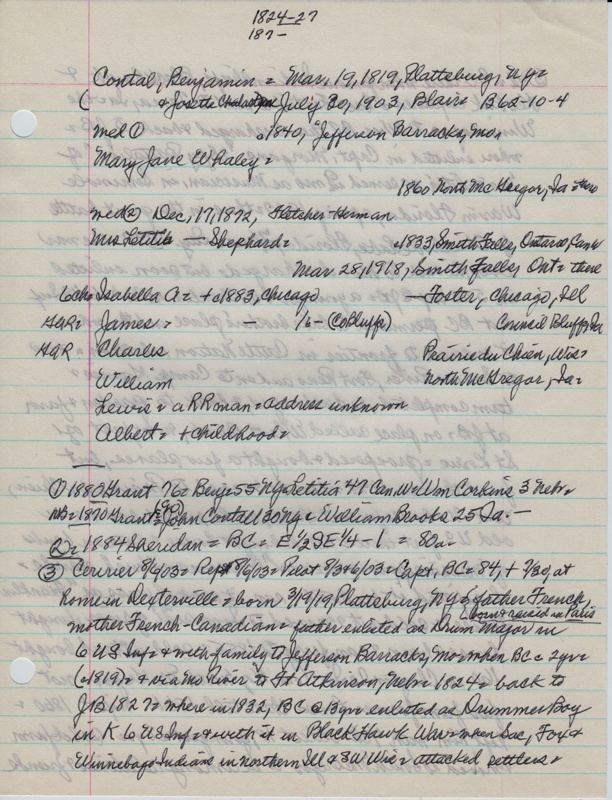 1824-27
187-
Contal, Benjamin = Mar, 19, 1819, Plattsburg, Ny=
( & Josette July 30, 1903, Blair B62-10-4
med ① c1840, "Jefferson Barracks, Mo,
Mary Jane Whaley =
1860 North McGregor, Ia = there
med ② Dec, 17, 1872, Fletcher-Herman
Mrs Letitia — Shephard = c1833, Smith Falls, Ontario, Can
Mar 28, 1918, Smith Falls, Ont = there
6 chn Isabella A = + c1883, Chicago — Foster, Chicago, Ill
James = — /6- (CoBluffs) Council Bluffs Ia
GAR Charles Prairie du Chien, Wis=
William North McGregor, Ia=
Lewis = a RR man = address unknown
Albert = + childhood =
① 1880 Grant 76 = Benj = 55 Ny = Letitia 47 Can = Wm Corkins 3 Nebr =
1870 Grant = John Contall 30 Ny = William Brooks 25 Ia. —
2 = 1884 Sheridan = BC = E½ SE¼-1 = 80a=
③ Courier 8/6/03 = Rep 8/6/03 = Pilot 8/3 & 6/03 = Capt, BC = 84, + 7/30, at
home in Dexterville = born 3/19/19, Plattsburg, Ny & father French,
(born & raised in Paris
mother French-Canadian = father enlisted as Drum Major in
6 US Inf = & with family to Jefferson Barracks, Mo = when BC = 2yr =
(c1819) = & via Mo River to Ft Atkinson, Nebr = 1824 = back to
JB 1827 = where in 1832, BC @ 13yr enlisted as Drummer Boy
in K 6 US Inf = & with it in Black Hawk War = when Sac, Fox &
Winnebago Indians in northern Ill & SW Wis = attacked settlers =